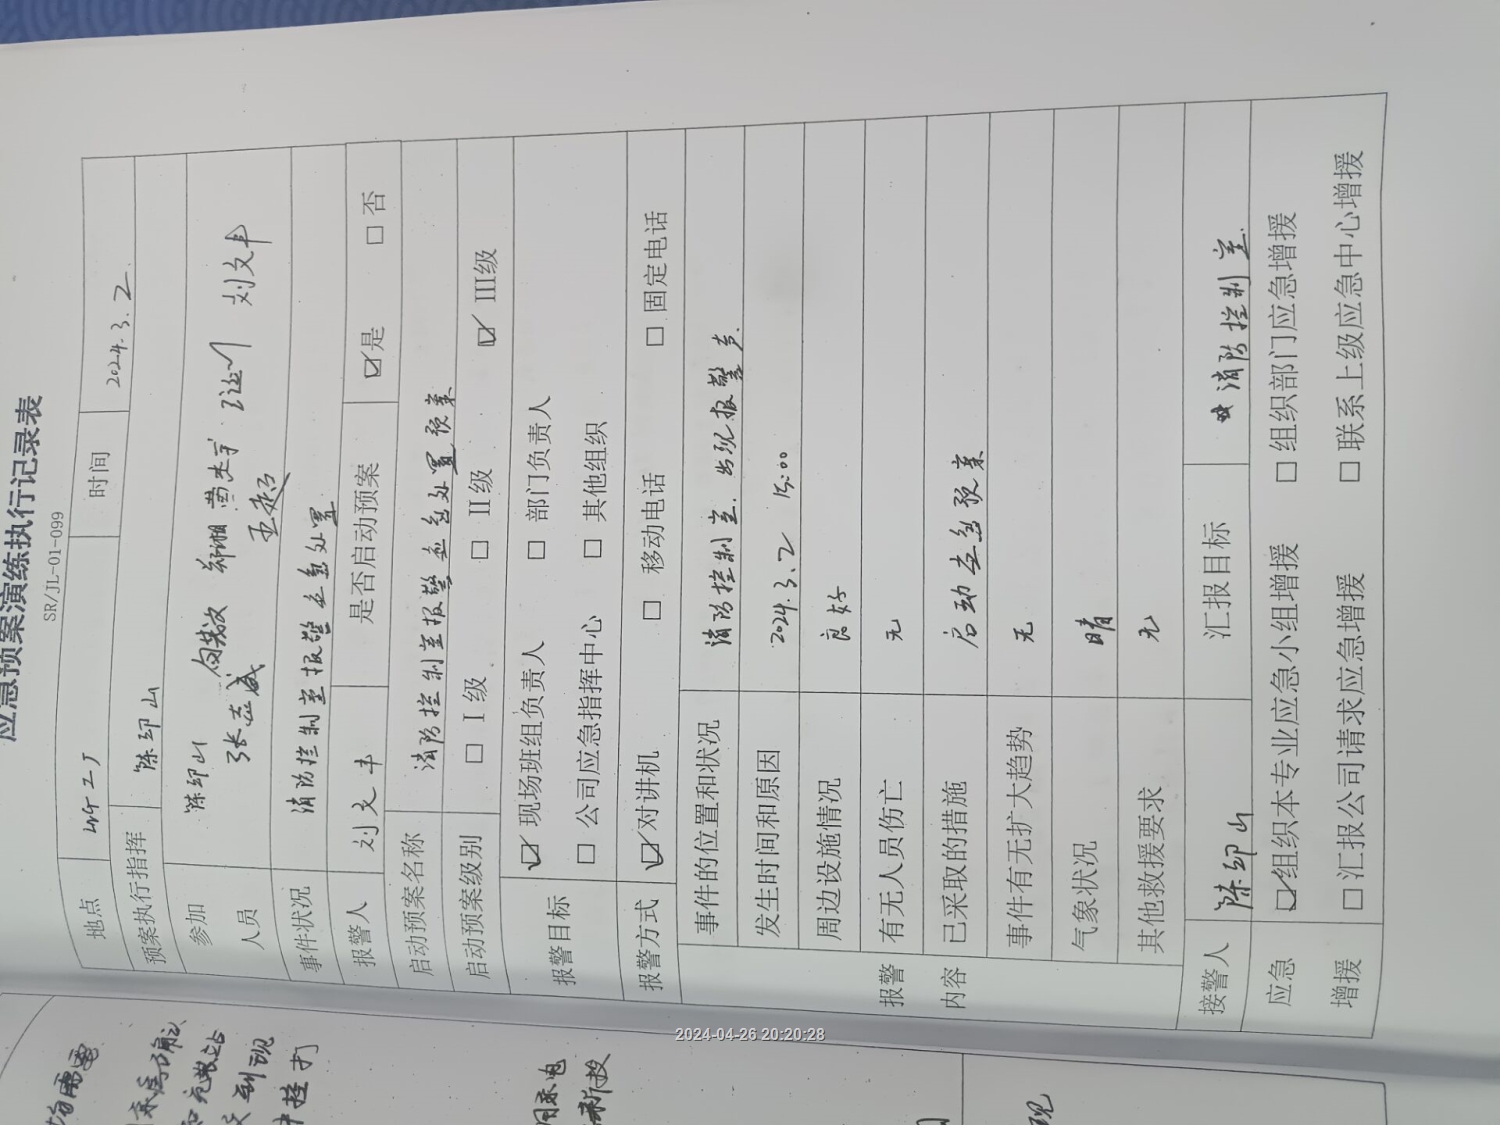 应急预案演练执行记录表
SR/JL-01-099
地点 时间 2024.3.2
预案执行指挥 陈印山
参加人员 陈印山 刘文丰
张 王超
事件状况 消防控制室报警应急处置
报警人 刘文丰 是否启动预案 ☑是 □否
启动预案名称 消防控制室报警应急处置预案
启动预案级别 □ I级 □ II级 ☑ III级
报警目标 ☑ 现场班组负责人 □ 部门负责人
□ 公司应急指挥中心 □ 其他组织
报警方式 ☑ 对讲机 □ 移动电话 □ 固定电话
报警内容
事件的位置和状况 消防控制室.出现报警声.
发生时间和原因 2024.3.2 15:00
周边设施情况 良好
有无人员伤亡 无
已采取的措施 启动应急预案
事件有无扩大趋势 无
气象状况 晴
其他救援要求 无
接警人 陈印山 汇报目标 消防控制室.
应急增援 ☑组织本专业应急小组增援 □ 组织部门应急增援
□ 汇报公司请求应急增援 □ 联系上级应急中心增援
2024-04-26 20:20:28